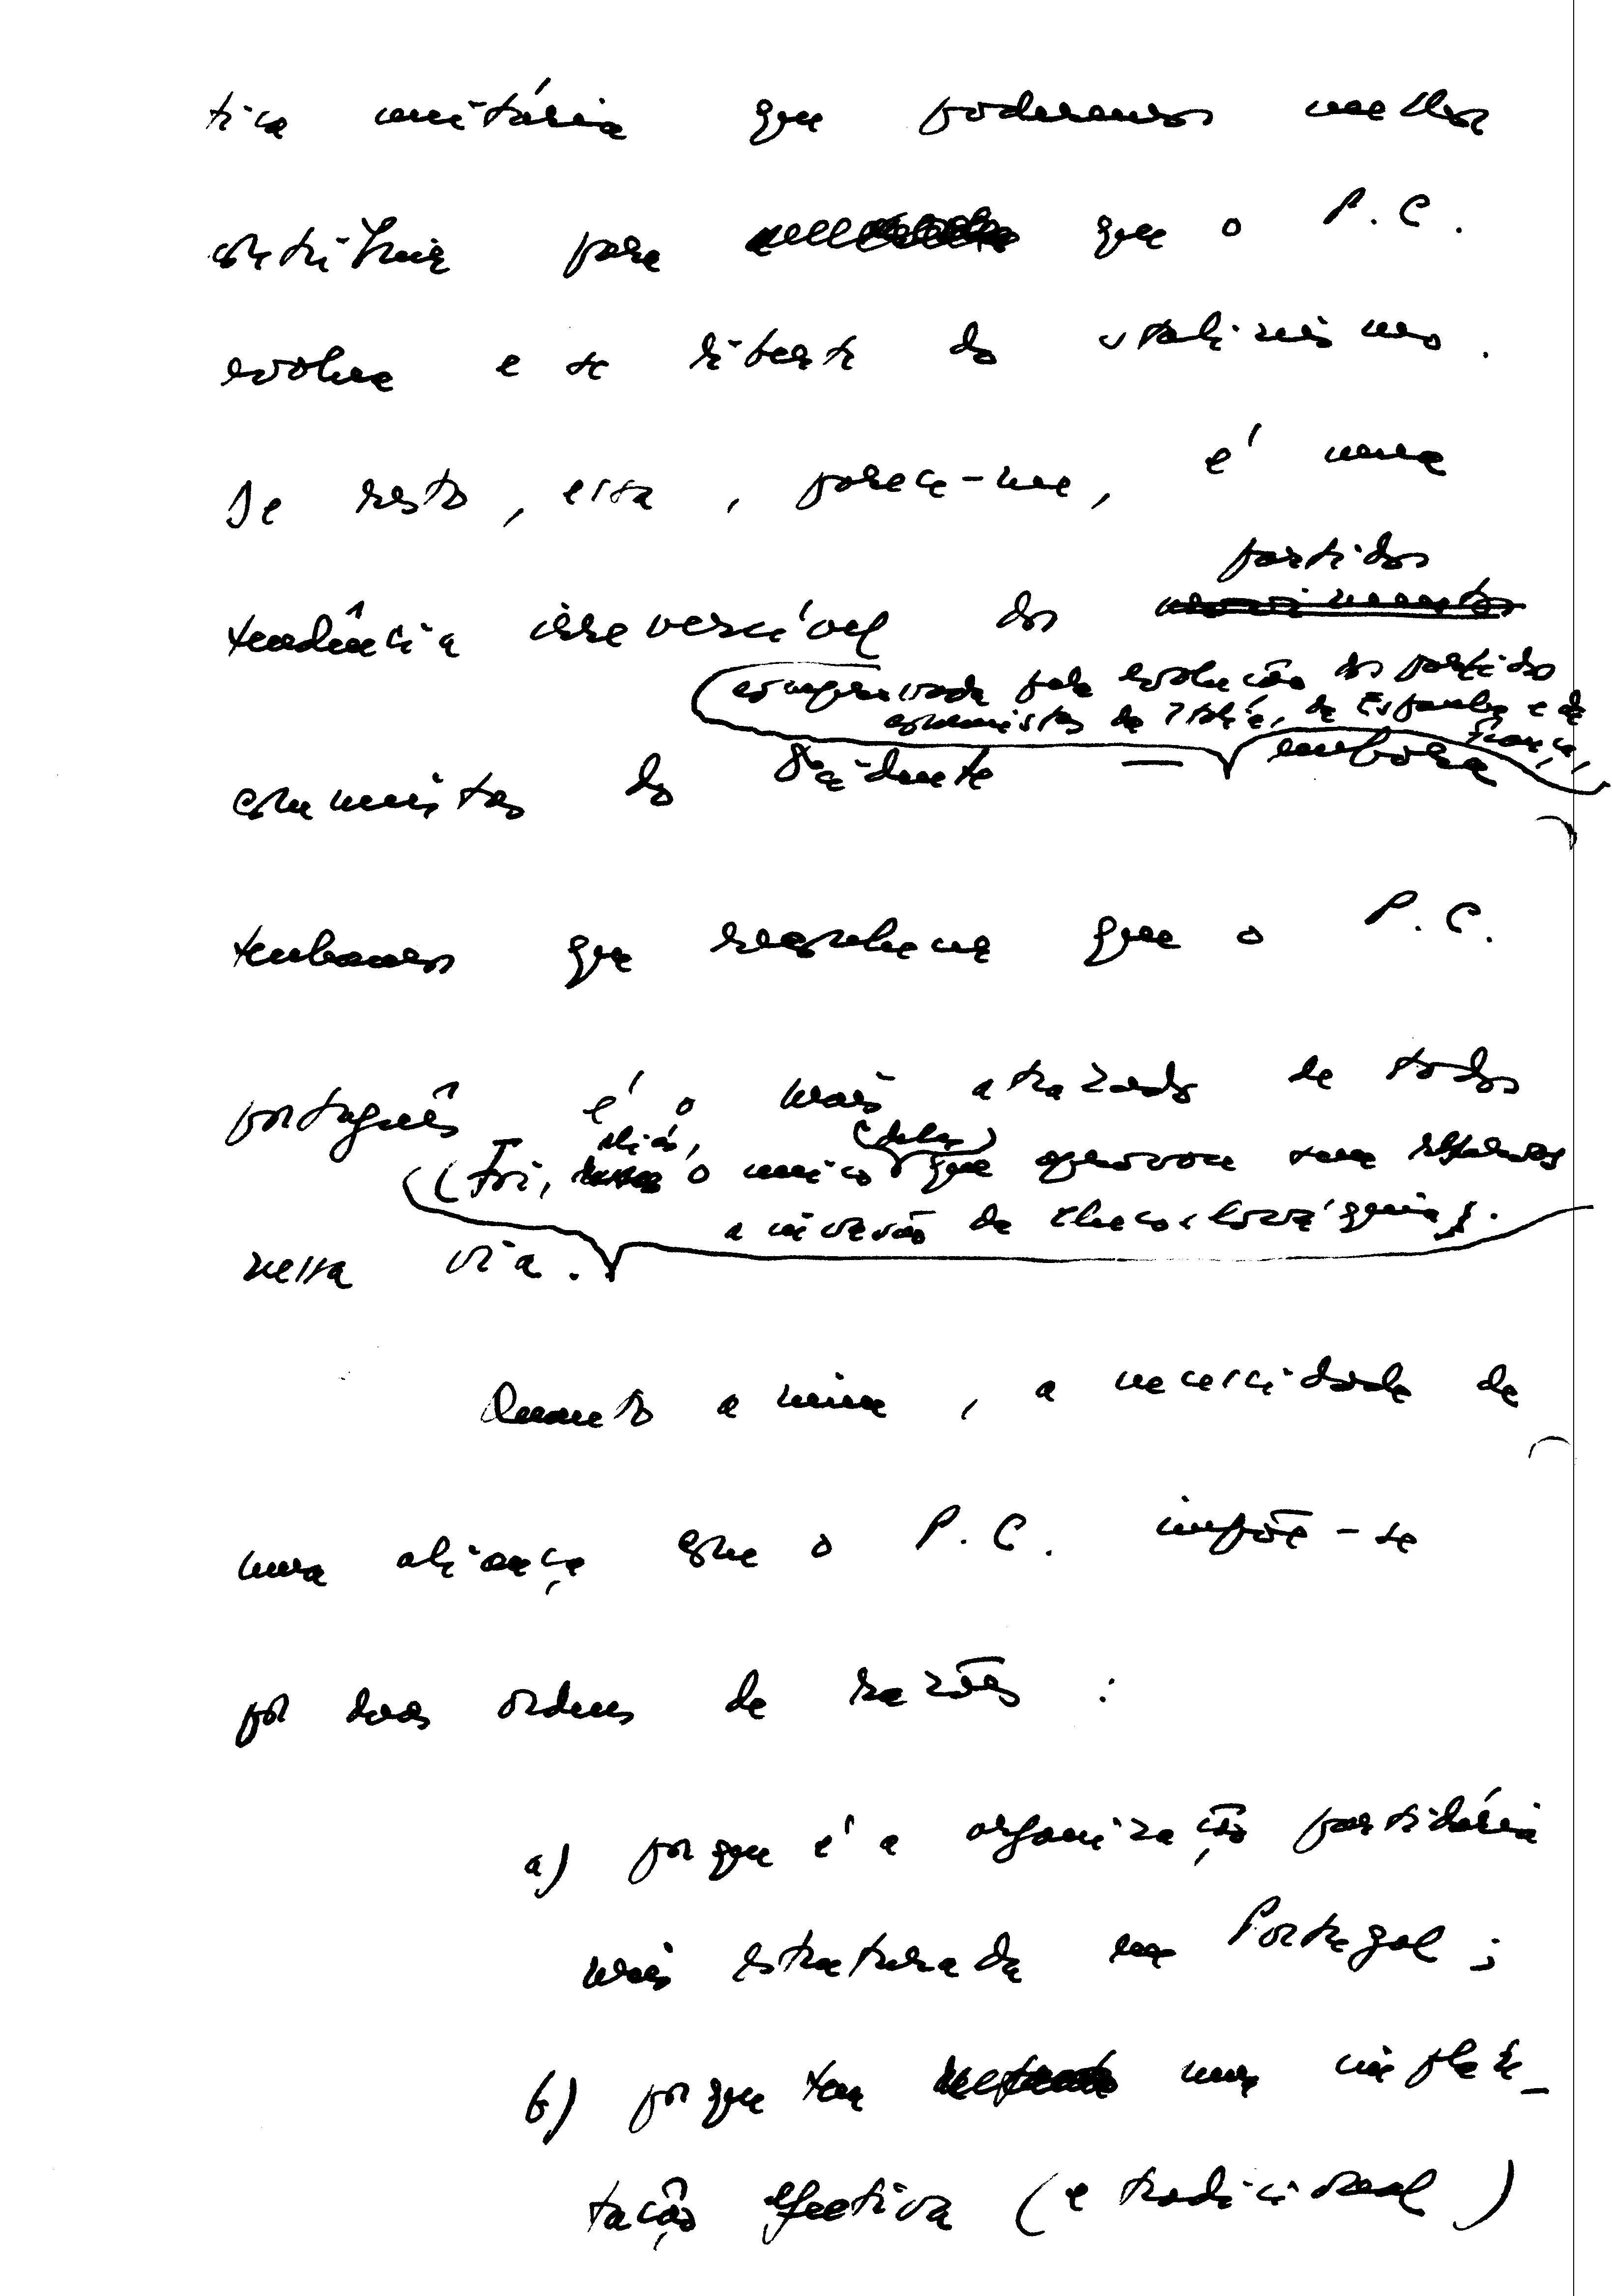 tica unitária que poderemos melhor
contribuir para que o P.C.
evolua e se liberte do stalinismo.
De resto, essa, parece-me, é uma
partidos
tendência irreversível dos movimentos
(comprovada pela evolução dos partidos
comunistas da Itália, da Espanha e da
França,
comunistas do Ocidente — embora
tenhamos que reconhecer que o P.C.
português é o mais atrazado de todos
aliás, (deles)
(Foi, o unico que aprovou sem reservas
a invasão da Checoslováquia).
nessa via.
Quanto a mim, a necessidade de
uma aliança com o P.C. impõe-se
por duas ordens de razões:
a) porque é a organização partidária
mais estruturada em Portugal;
b) porque tem uma implan-
tação efectiva (e tradicional)